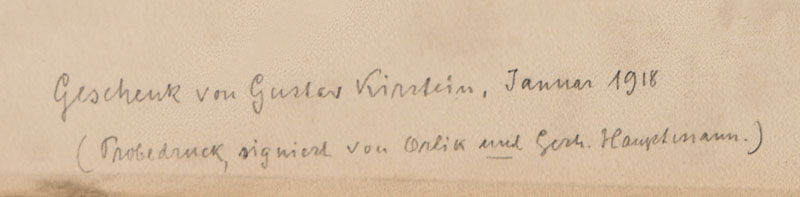 Geschenk von Gustav Kirstein, Januar 1918
(Probedruck, signiert von Orlik und Gerh. Hauptmann.)